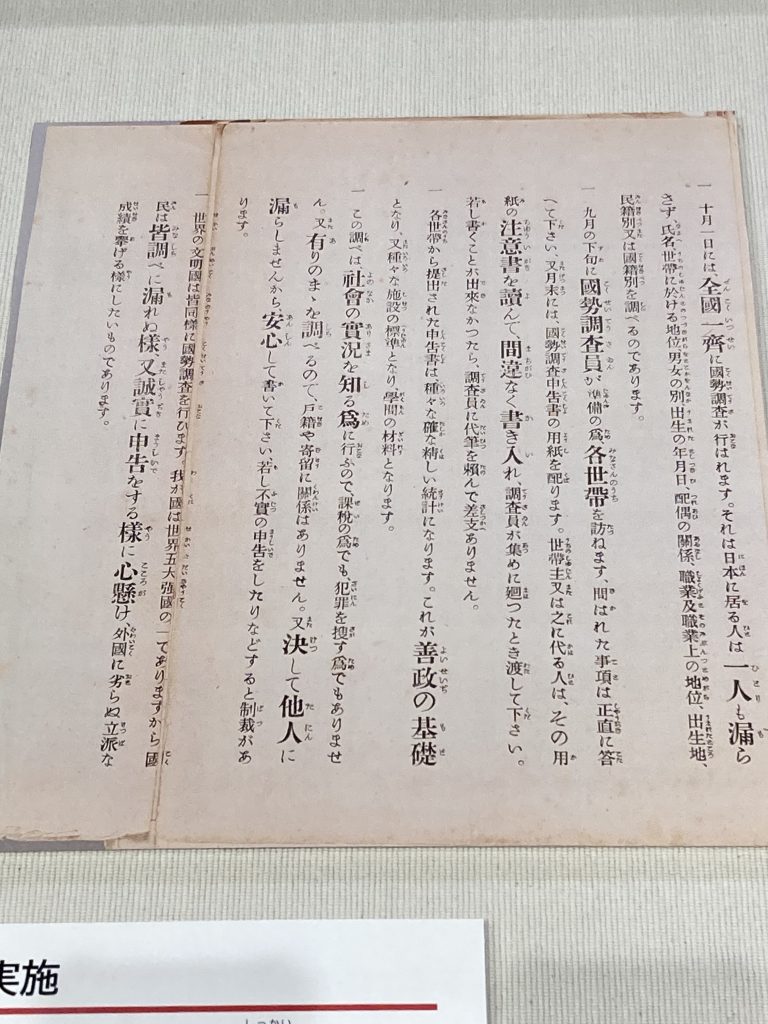 一 十月一日には、全國一齊に國勢調査が行はれます。それは日本に居る人は一人も漏ら
さず、氏名世帶に於ける地位、男女の別、出生の年月日、配偶の關係、職業及職業上の地位、出生地、
民籍別又は國籍別を調べるのであります。
一 九月の下旬に國勢調査員が準備の爲各世帶を訪ねます、問はれた事項は正直に答
へて下さい、又月末には、國勢調査申告書の用紙を配ります。世帶主又は之に代る人は、その用
紙の注意書を讀んで、間違なく書き入れ、調査員が集めに廻つたとき渡して下さい。
若し書くことが出來なかつたら、調査員に代筆を賴んで差支ありません。
一 各世帶から提出された申告書は種々な確な精しい統計になります。これが善政の基礎
となり、又種々な施設の標準となり、學問の材料となります。
一 この調べは社會の實況を知る爲に行ふので、課税の爲でも、犯罪を搜す爲でもありませ
ん。又有りのまゝを調べるので、戸籍や寄留に關係はありません。又決して他人に
漏らしませんから安心して書いて下さい、若し不實の申告をしたりなどすると制裁があ
ります。
一 世界の文明國は皆同樣に國勢調査を行ひます 我が國は世界五大强國の一でありますから國
民は皆調べに漏れぬ樣、又誠實に申告をする樣に心懸け、外國に劣らぬ立派な
成績を擧げる樣にしたいものであります。
実施
しっかい